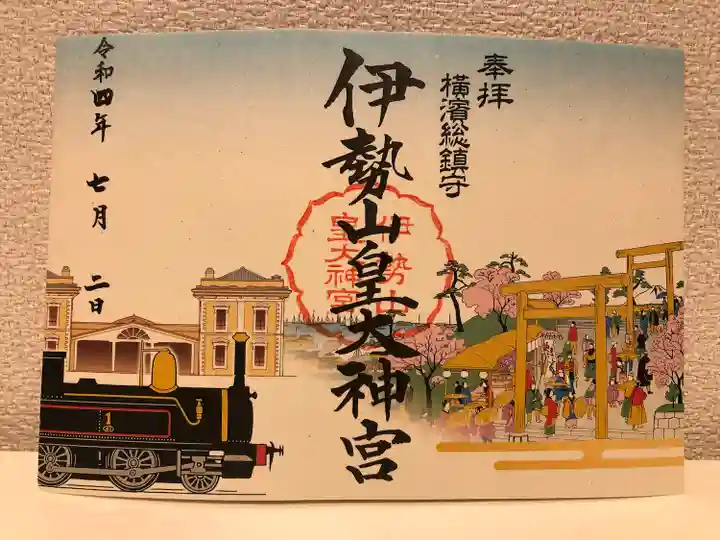 奉拝
横濱総鎮守
伊勢山皇大神宮
伊勢山
皇大神宮
令和四年 七月 二日
1